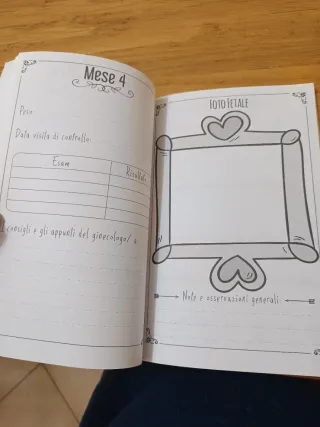 Mese 4
Peso
Data visita di controllo:
Esam
Risultato
consigli e gli appunti del ginecologo/ a
FOTO FETALE
Note e osservazioni generali